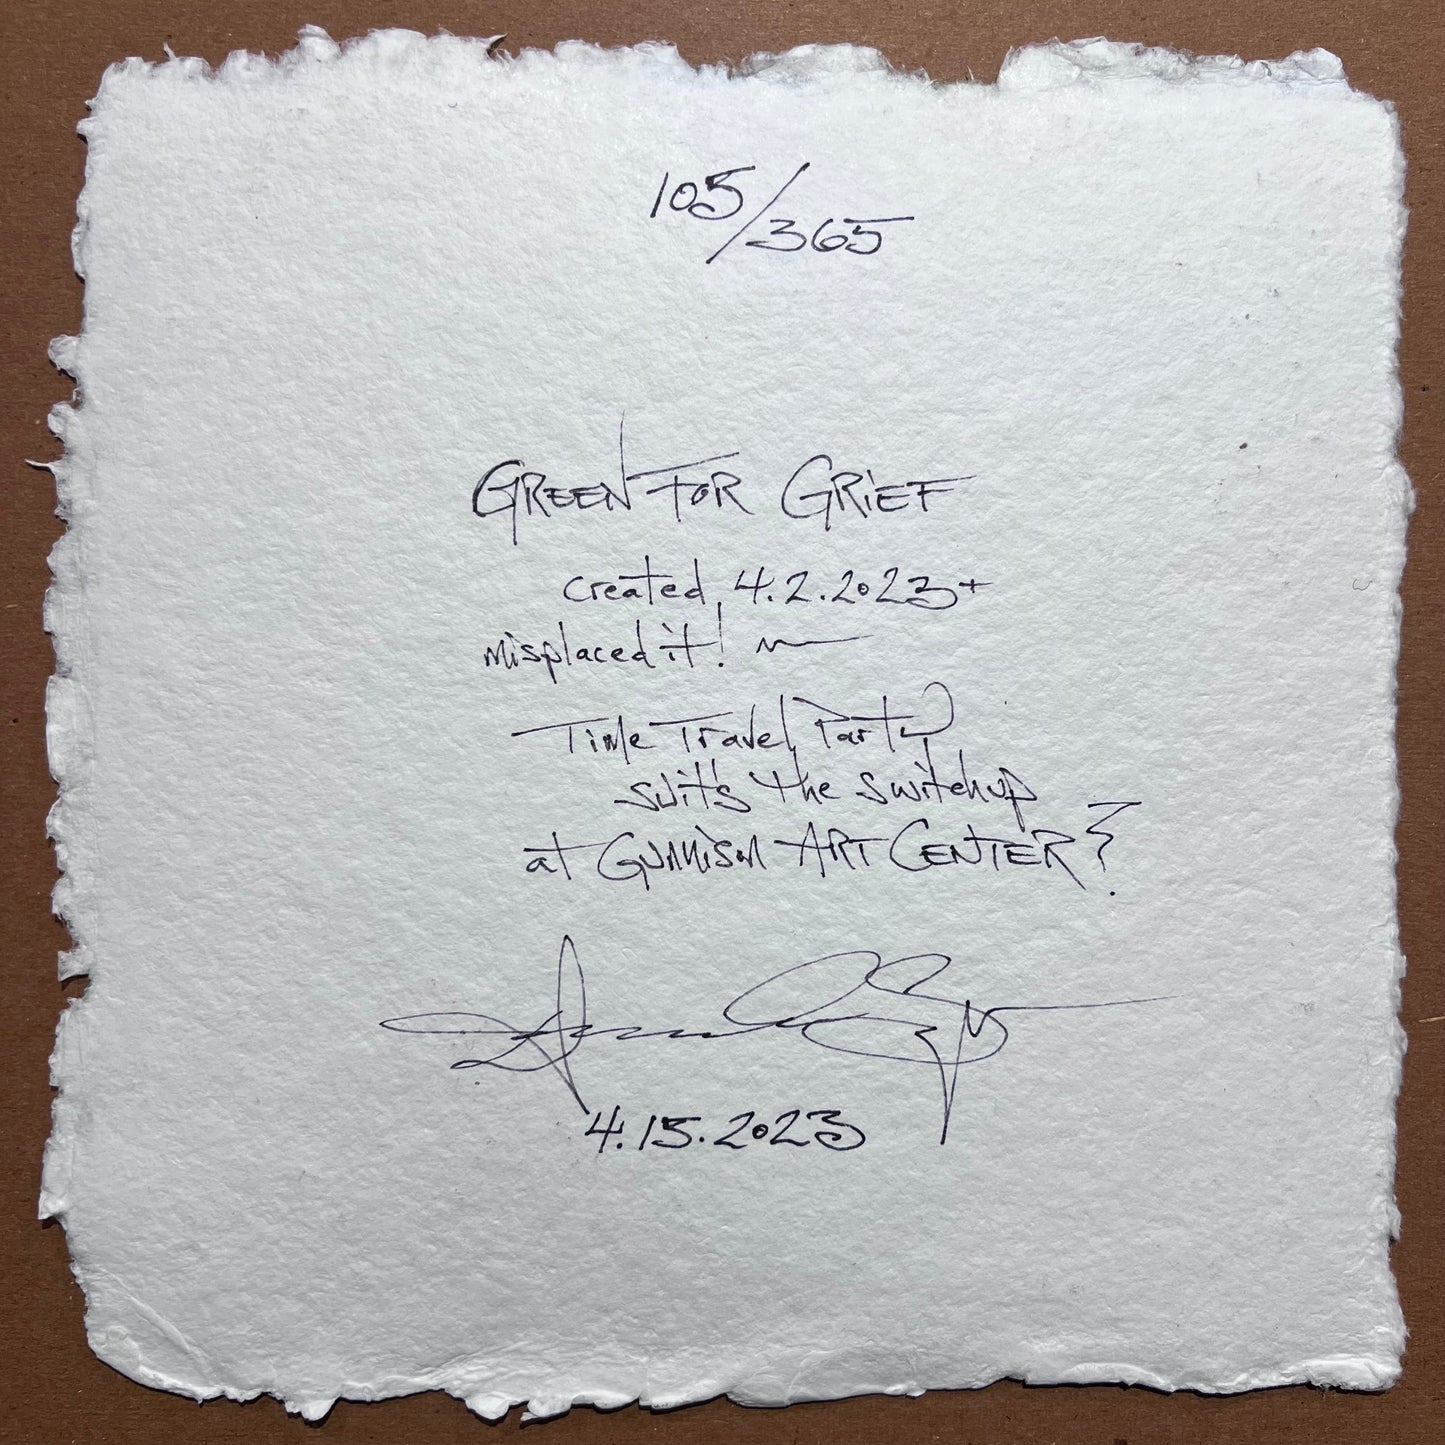 105/365
GREEN FOR GRIEF
created 4.2.2023 +
misplaced it! ~
Time Travel Party
suits the switchup
at GUNNISON ART CENTER?
4.15.2023